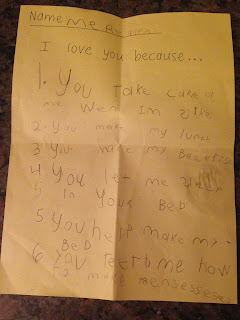 Name Me
I love you because...
1. You take care of
me wen Im
2. You make my lunch
3 You make my
4 You let me
in Your BeD
5 You help make my
BeD
6 You teeth me how
to make